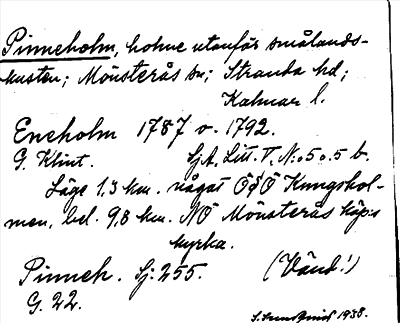 Pinneholm, holme utanför smålands-
kusten; Mönsterås sn; Stranda hd;
Kalmar l.
Eneholm 1787 o. 1792.
G. Klint. Sj.A. Litt. V, N:o 5 o. 5 b.
Läge 1,3 km. något ÖSÖ Kungshol-
men, bel. 9,8 km. NÖ Mönsterås köp:s
kyrka.
Pinneh. Sj: 255. (Vänd!)
G. 22.
1938.